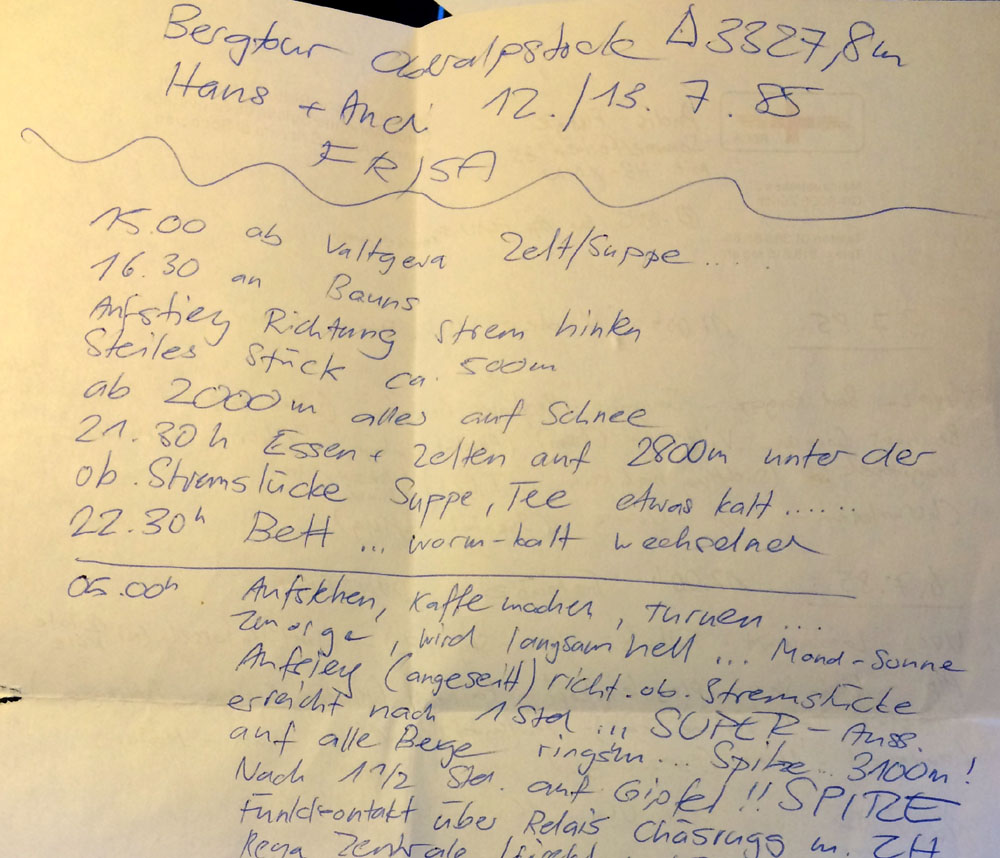 Bergtour Oberalpstock △ 3327,8m
Hans + Andi 12./13. 7. 85
FR/SA
15.00 ab Valtgeva Zelt/Suppe.....
16.30 an Bauns
Aufstieg Richtung Strem hinten
Steiles Stück ca. 500m
ab 2000m alles auf Schnee
21.30h Essen + zelten auf 2800m unter der
ob. Stremslücke Suppe, Tee etwas kalt......
22.30h Bett ... warm-kalt wechselnd
05.00h Aufstehen, Kaffe machen, turnen ....
Zmorge, wird langsam hell ... Mond-Sonne
Aufsieg (angeseilt) richt. ob. Stremslücke
erreicht nach 1 Std ... SUPER-Auss.
auf alle Berge ringsum... Spitze... 3100m!
Nach 1 1/2 Std. auf Gipfel!! SPITZE
Funkkontakt über Relais Chäsrugg m. ZH
Rega Zentrale